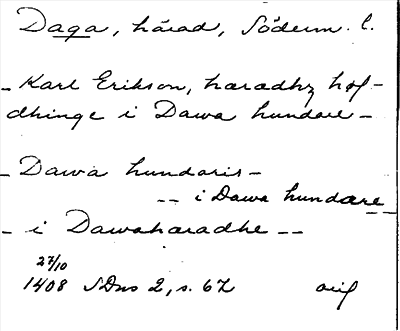 Daga, härad, Söderm. l.
– Karl Erikson, haradhz höf–
dhinge i Dawa hundare –
– Dawa hundaris –
–– i Dawa hundære
– i Dawaharadhe ––
27/10
1408 SDns 2, s. 67 orig